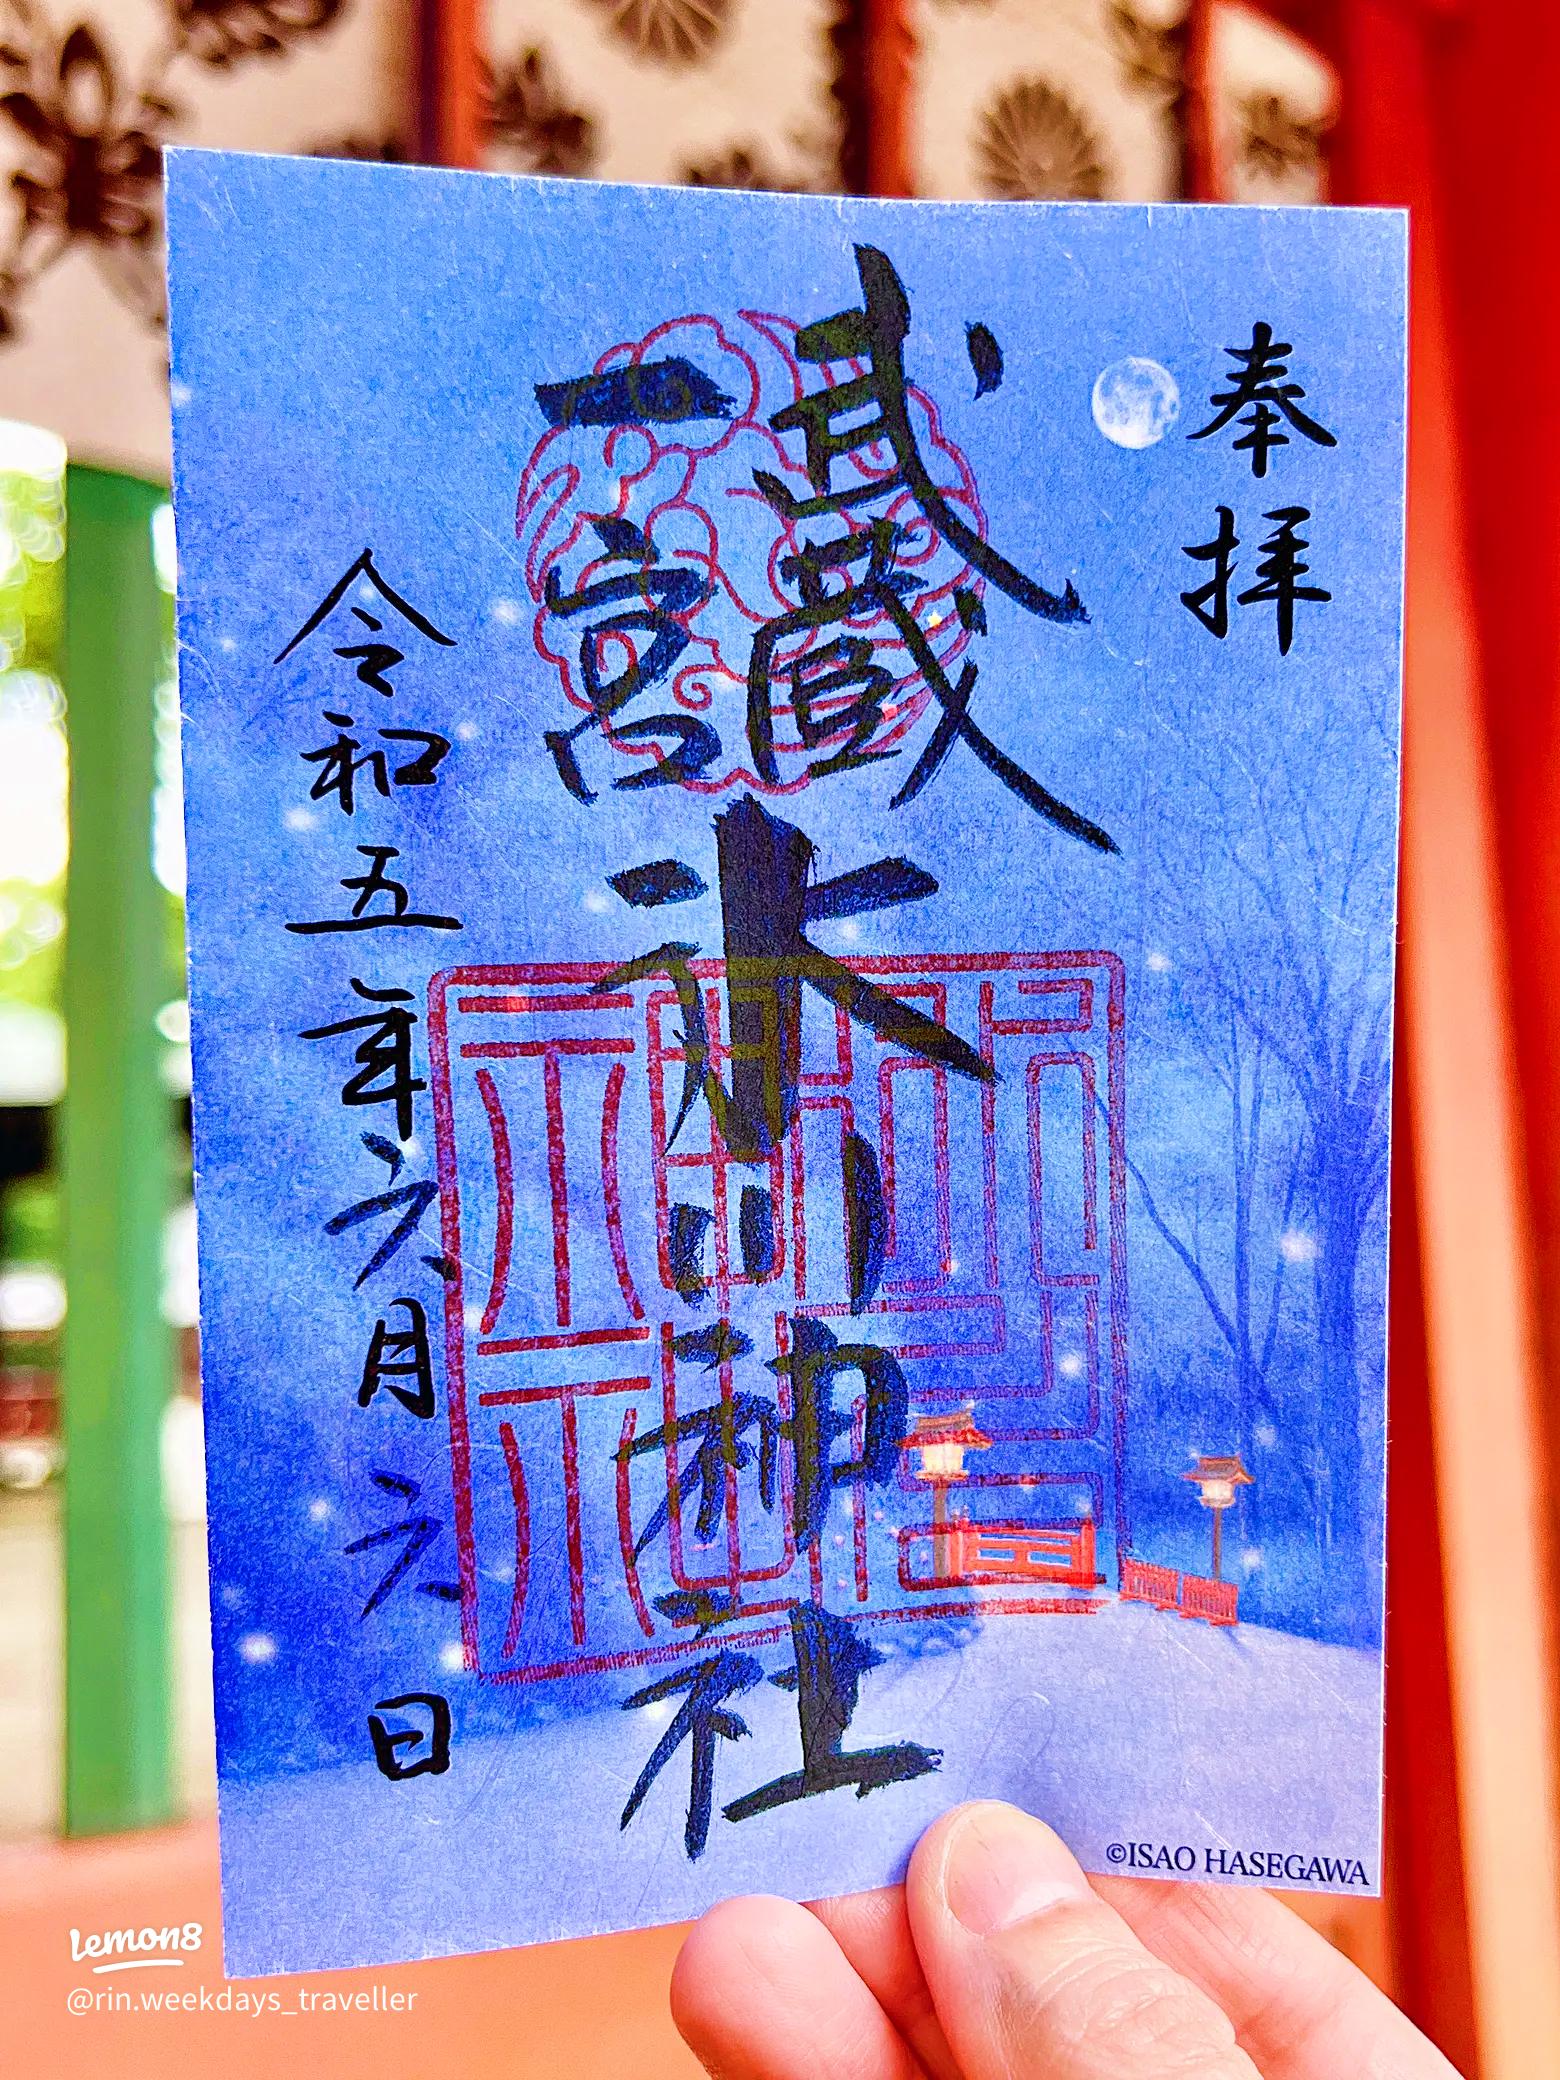 奉拝
武蔵
一宮
氷川神社
令和五年六月六日
©ISAO HASEGAWA
lemon8
@rin.weekdays_traveller